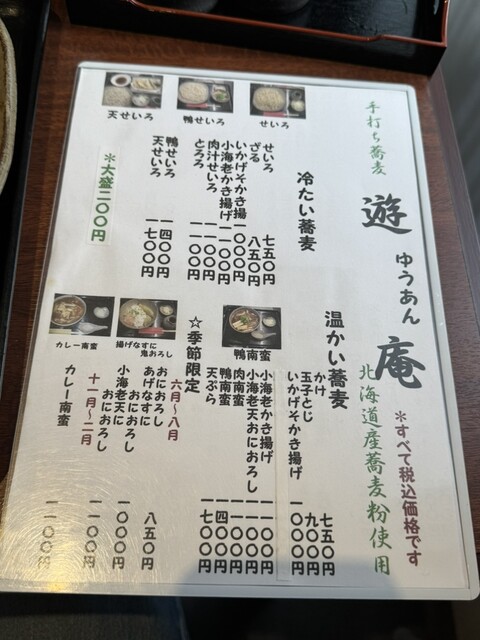 手打ち蕎麦
遊
ゆうあん
庵
※すべて税込価格です
北海道産蕎麦粉使用
冷たい蕎麦
せいろ 七五〇円
ざる 八五〇円
いかげそかき揚 一〇〇〇円
小海老かき揚げ 一一〇〇円
肉汁せいろ 一一〇〇円
とろろ 一一〇〇円
鴨せいろ 一四〇〇円
天せいろ 一七〇〇円
※大盛二〇〇円
せいろ
鴨せいろ
天せいろ
温かい蕎麦
かけ 七五〇円
玉子とじ 九〇〇円
いかげそかき揚げ 一〇〇〇円
小海老かき揚げ 一一〇〇円
小海老天おにおろし 一一〇〇円
肉南蛮 一一〇〇円
鴨南蛮 一四〇〇円
天ぷら 一七〇〇円
鴨南蛮
☆季節限定
六月〜八月
おにおろし 八五〇円
あげなすに
おにおろし 一〇〇〇円
小海老天に
おにおろし 一一〇〇円
十一月〜二月
カレー南蛮 一一〇〇円
揚げなすに
鬼おろし
カレー南蛮